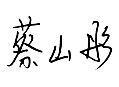 蔡山彤